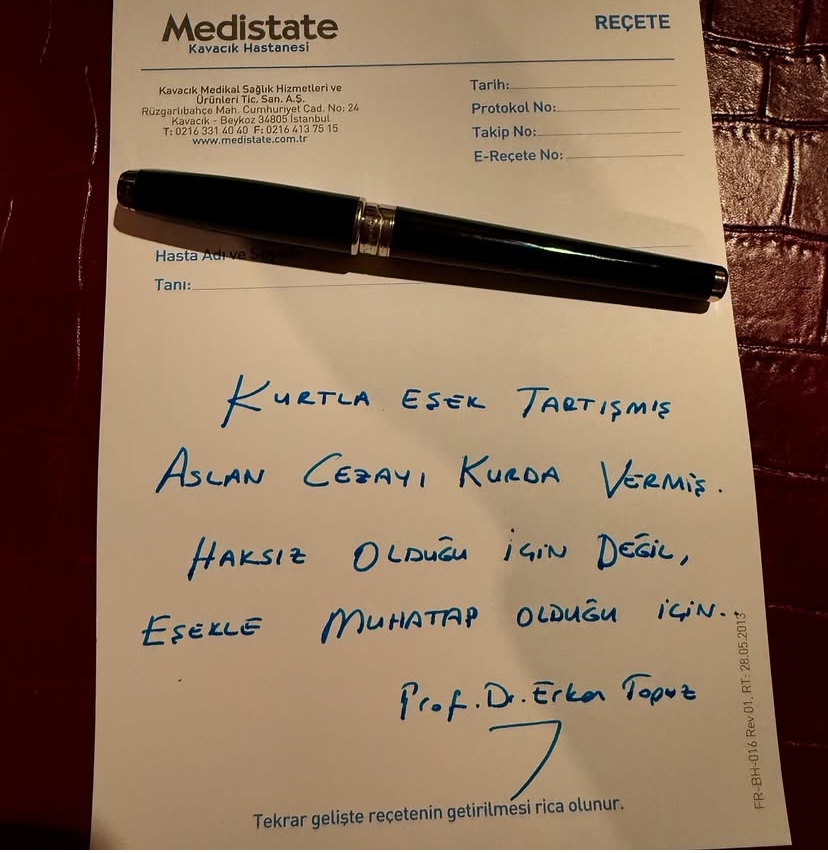 Medistate
Kavacık Hastanesi
REÇETE
Kavacık Medikal Sağlık Hizmetleri ve
Ürünleri Tic. San. A.Ş.
Rüzgarlıbahçe Mah. Cumhuriyet Cad. No: 24
Kavacık - Beykoz 34805 İstanbul
T: 0216 331 40 40 F: 0216 413 75 15
www.medistate.com.tr
Tarih:
Protokol No:
Takip No:
E-Reçete No:
Hasta Adı ve
Tanı:
KURTLA EŞEK TARTIŞMIŞ
ASLAN CEZAYI KURDA VERMİŞ.
HAKSIZ OLDUĞU İÇİN DEĞİL,
EŞEKLE MUHATAP OLDUĞU İÇİN..
Prof. Dr. Erkan Topuz
Tekrar gelişte reçetenin getirilmesi rica olunur.
FR-BH-016 Rev 01, RT: 28.05.2013